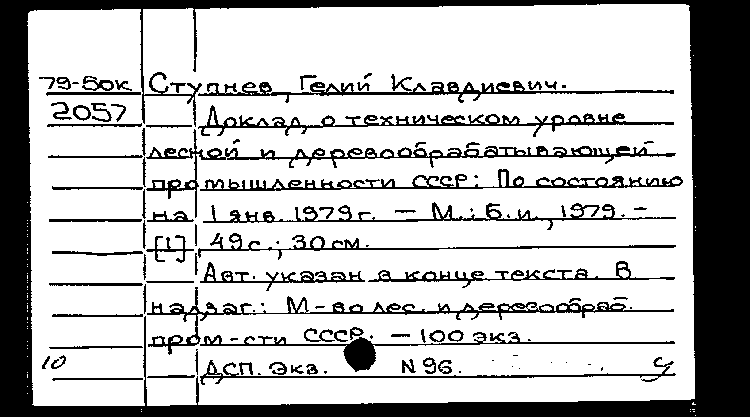 79-5ок Ступнев, Гелий Клавдиевич.
2057 Доклад о техническом уровне
лесной и деревообрабатывающей
промышленности СССР: По состоянию
на 1 янв. 1979г. — М.: Б.и., 1979. -
[1], 49с.; 30см.
Авт. указан в конце текста. В
надзаг.: М-во лес. и деревообраб.
пром-сти СССР. — 100 экз.
10 ДСП. Экз. N 96. у